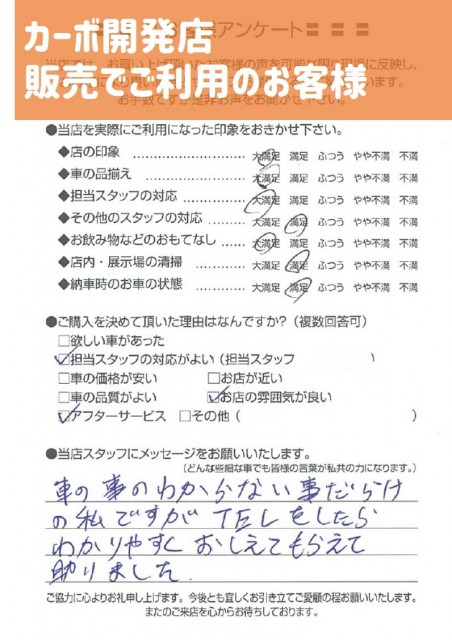 カーボ開発店
販売でご利用のお客様
アンケート
●当店を実際にご利用になった印象をおきかせ下さい。
◆店の印象 大満足 満足 ふつう やや不満 不満
◆車の品揃え 大満足 満足 ふつう やや不満 不満
◆担当スタッフの対応 大満足 満足 ふつう やや不満 不満
◆その他のスタッフの対応 大満足 満足 ふつう やや不満 不満
◆お飲み物などのおもてなし 大満足 満足 ふつう やや不満 不満
◆店内・展示場の清掃 大満足 満足 ふつう やや不満 不満
◆納車時のお車の状態 大満足 満足 ふつう やや不満 不満
●ご購入を決めて頂いた理由はなんですか?(複数回答可)
□欲しい車があった
□担当スタッフの対応がよい(担当スタッフ )
□車の価格が安い □お店が近い
□車の品質がよい □お店の雰囲気が良い
□アフターサービス □その他( )
●当店スタッフにメッセージをお願いいたします。
(どんな些細な事でも皆様の言葉が私共の力になります。)
車の事のわからない事だらけ
の私ですが TELをしたら
わかりやすく おしえてもらえて
助りました.
ご協力に心よりお礼申し上げます。今後とも宜しくお引き立てご愛顧の程お願いいたします。
またのご来店を心からお待ちしております。